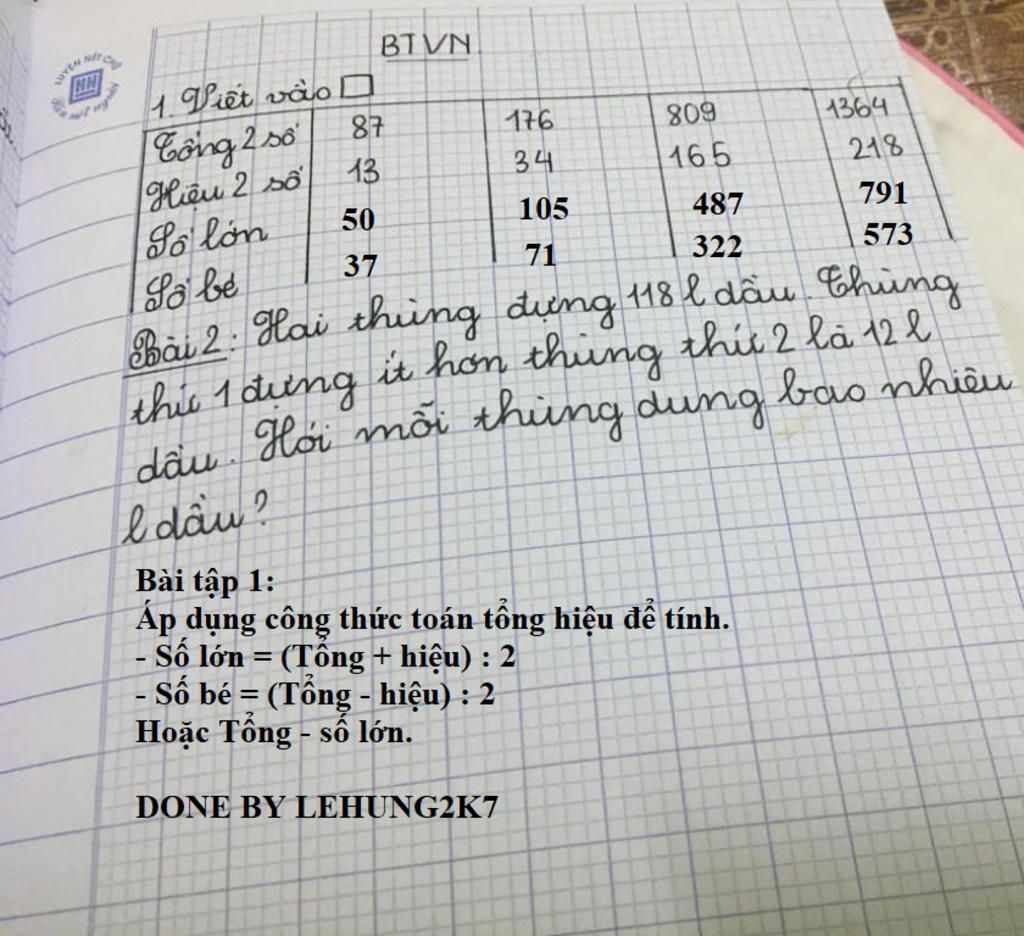 LUYỆN NÉT CHỮ
HN
Rèn nét người
BTVN
1. Viết vào □
Tổng 2 số 87 176 809 1364
Hiệu 2 số 13 34 165 218
Số lớn 50 105 487 791
Số bé 37 71 322 573
Bài 2: Hai thùng đựng 118 l dầu. Thùng
thứ 1 đựng ít hơn thùng thứ 2 là 12 l
dầu. Hỏi mỗi thùng dung bao nhiêu
l dầu?
Bài tập 1:
Áp dụng công thức toán tổng hiệu để tính.
- Số lớn = (Tổng + hiệu) : 2
- Số bé = (Tổng - hiệu) : 2
Hoặc Tổng - số lớn.
DONE BY LEHUNG2K7